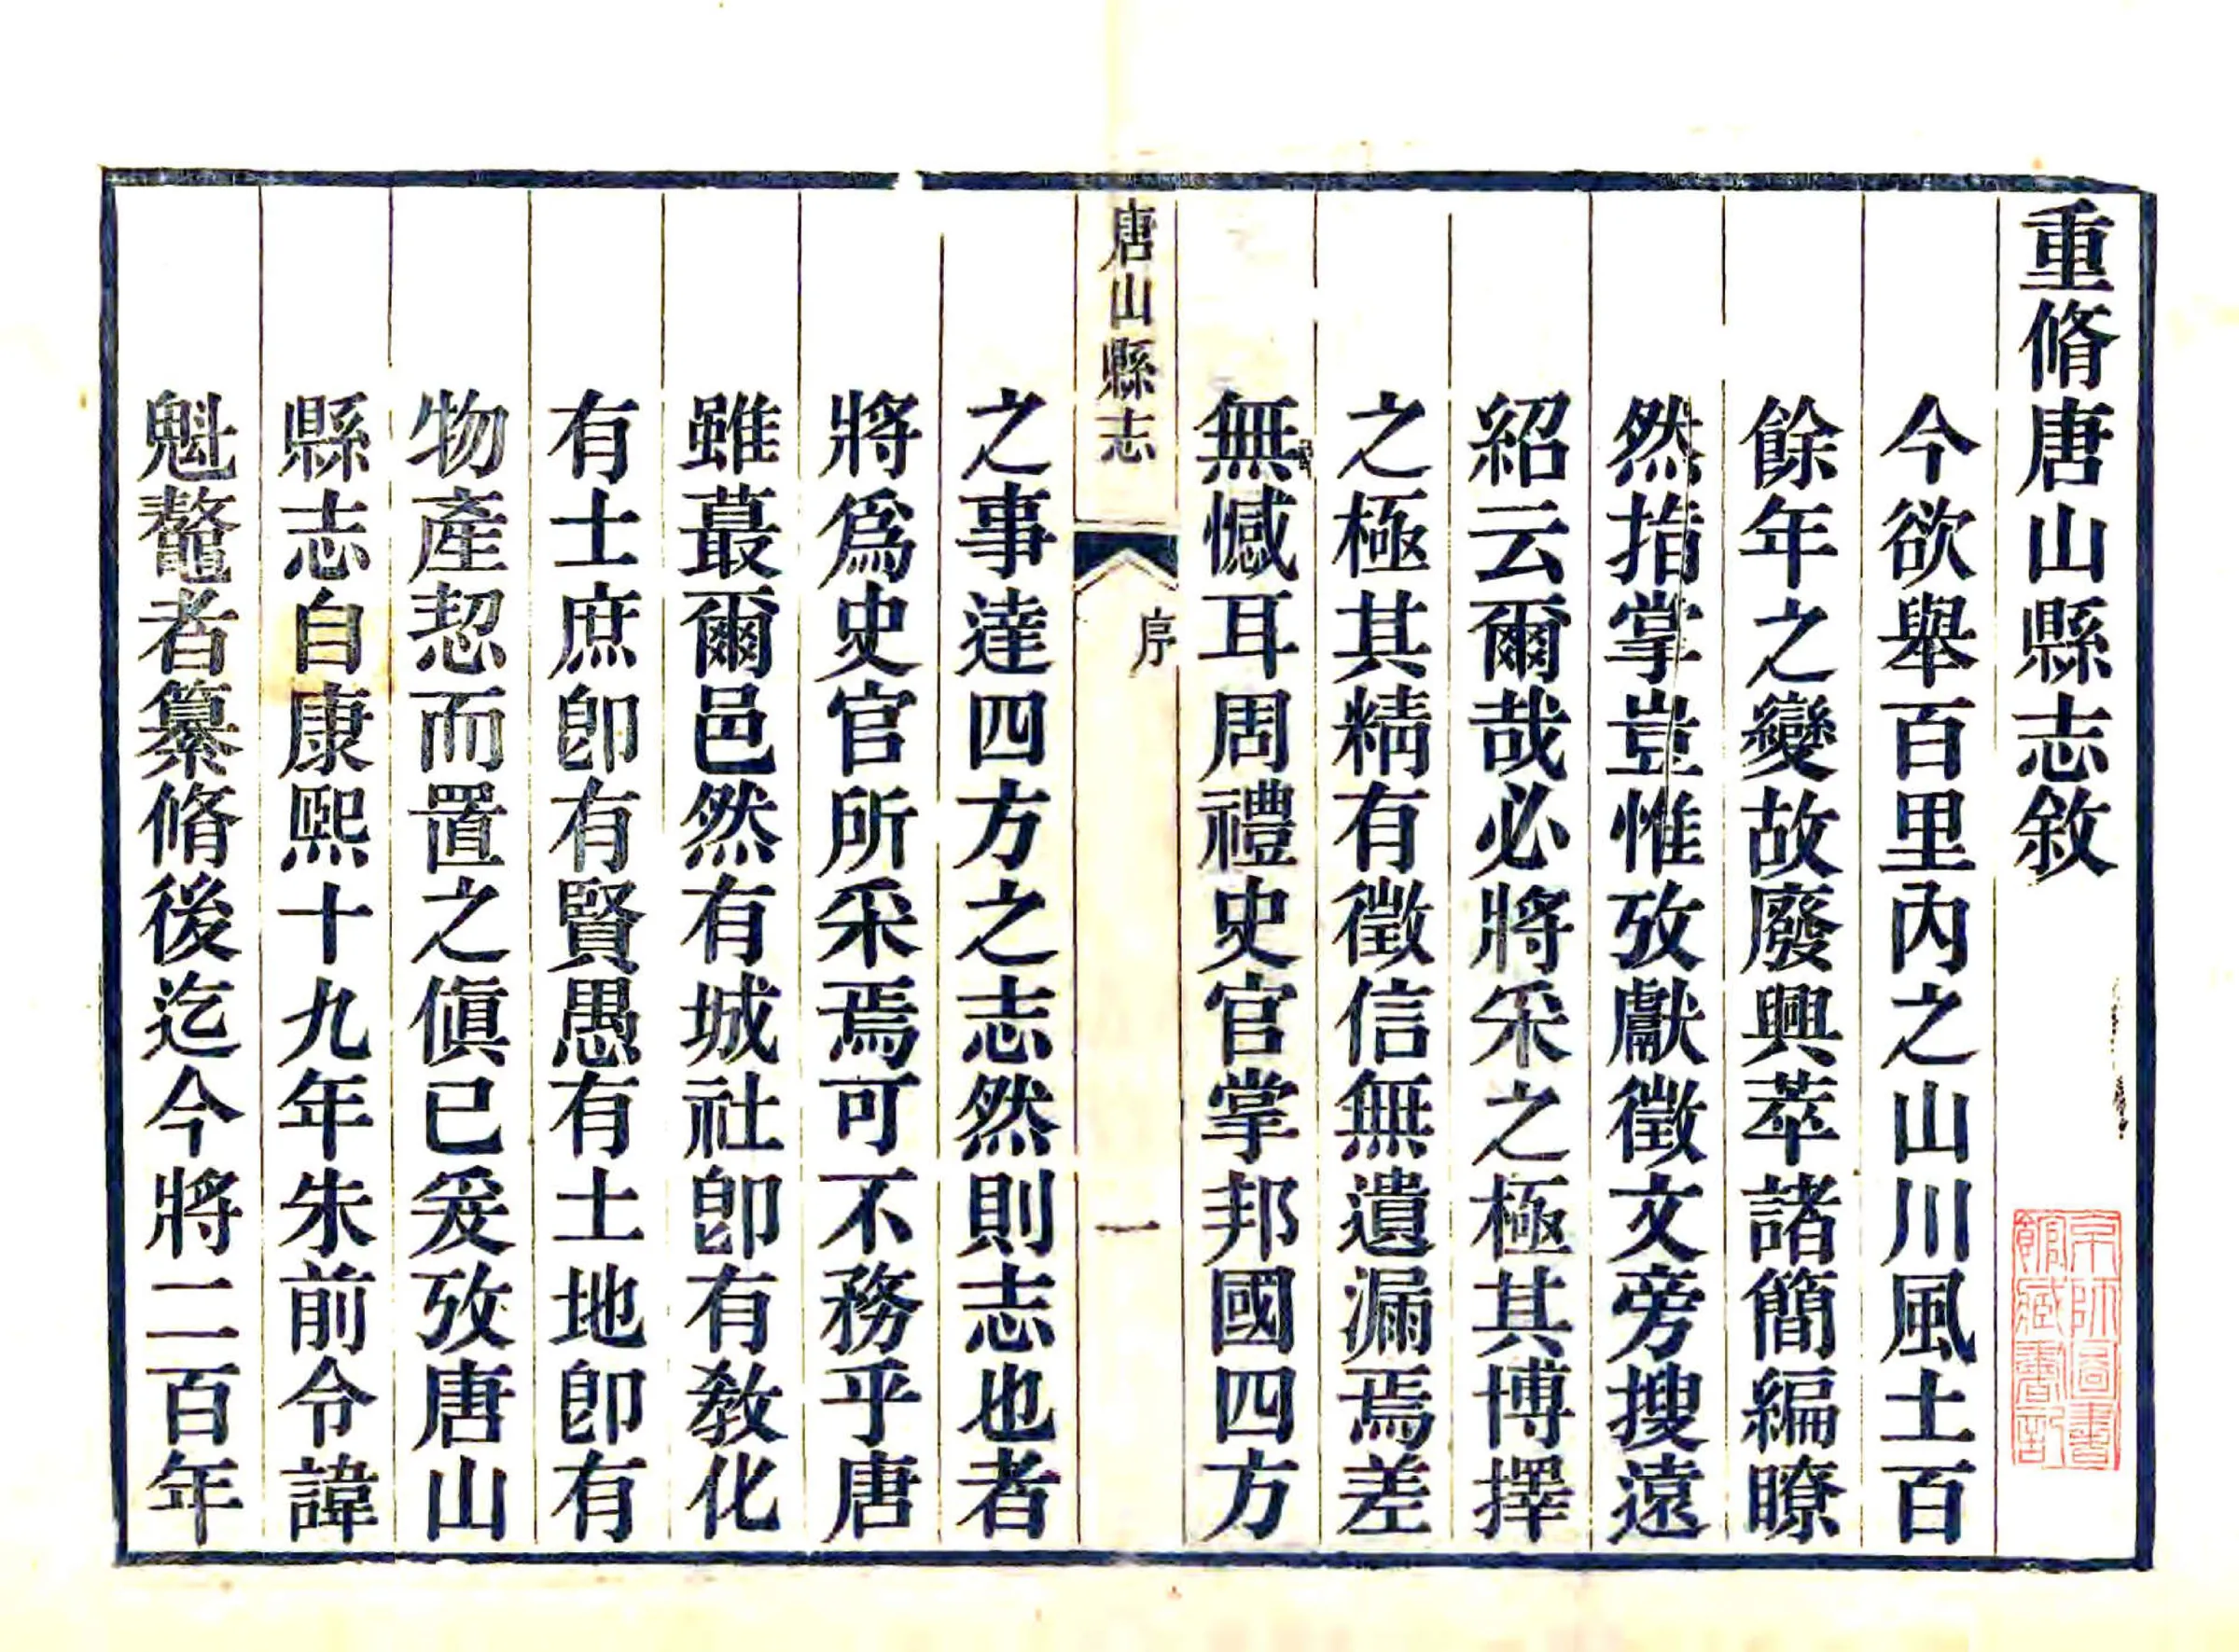 重脩唐山縣志敘
今欲舉百里內之山川風土百
餘年之變故廢興萃諸簡編瞭
然指掌豈惟攷獻徵文旁搜遠
紹云爾哉必將采之極其博擇
之極其精有徵信無遺漏焉差
無憾耳周禮史官掌邦國四方
唐山縣志
序
一
之事達四方之志然則志也者
將爲史官所采焉可不務乎唐
雖蕞爾邑然有城社卽有教化
有士庶卽有賢愚有土地卽有
物產恝而置之傎已爰攷唐山
縣志自康熙十九年朱前令諱
魁鼇者纂脩後迄今將二百年
京師圖書
館藏書記